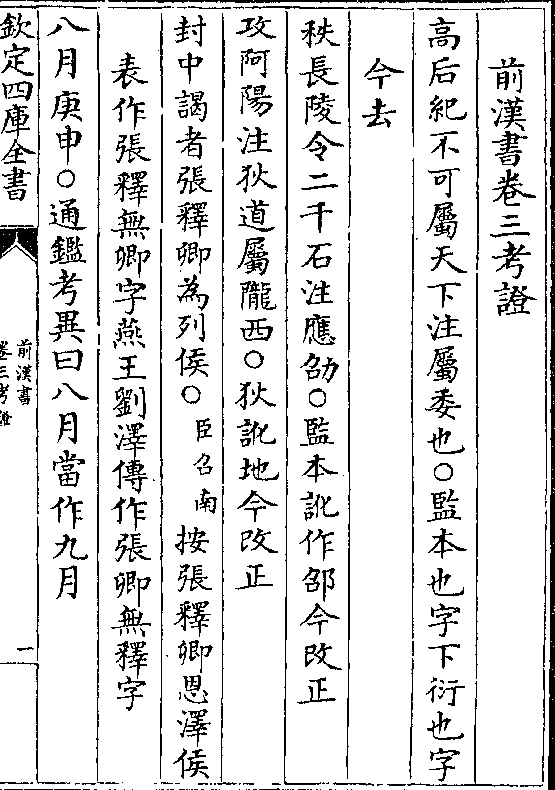 前漢書卷三考證
高后紀不可屬天下注屬委也○監本也字下衍也字
今去
秩長陵令二千石注應劭○監本訛作邵今改正
攻阿陽注狄道屬隴西○狄訛地今改正
封中謁者張釋卿為列侯○臣召南按張釋卿恩澤侯
表作張釋無卿字燕王劉澤傳作張卿無釋字
八月庚申○通鑑考異曰八月當作九月
欽定四庫全書
前漢書
卷三考證
一